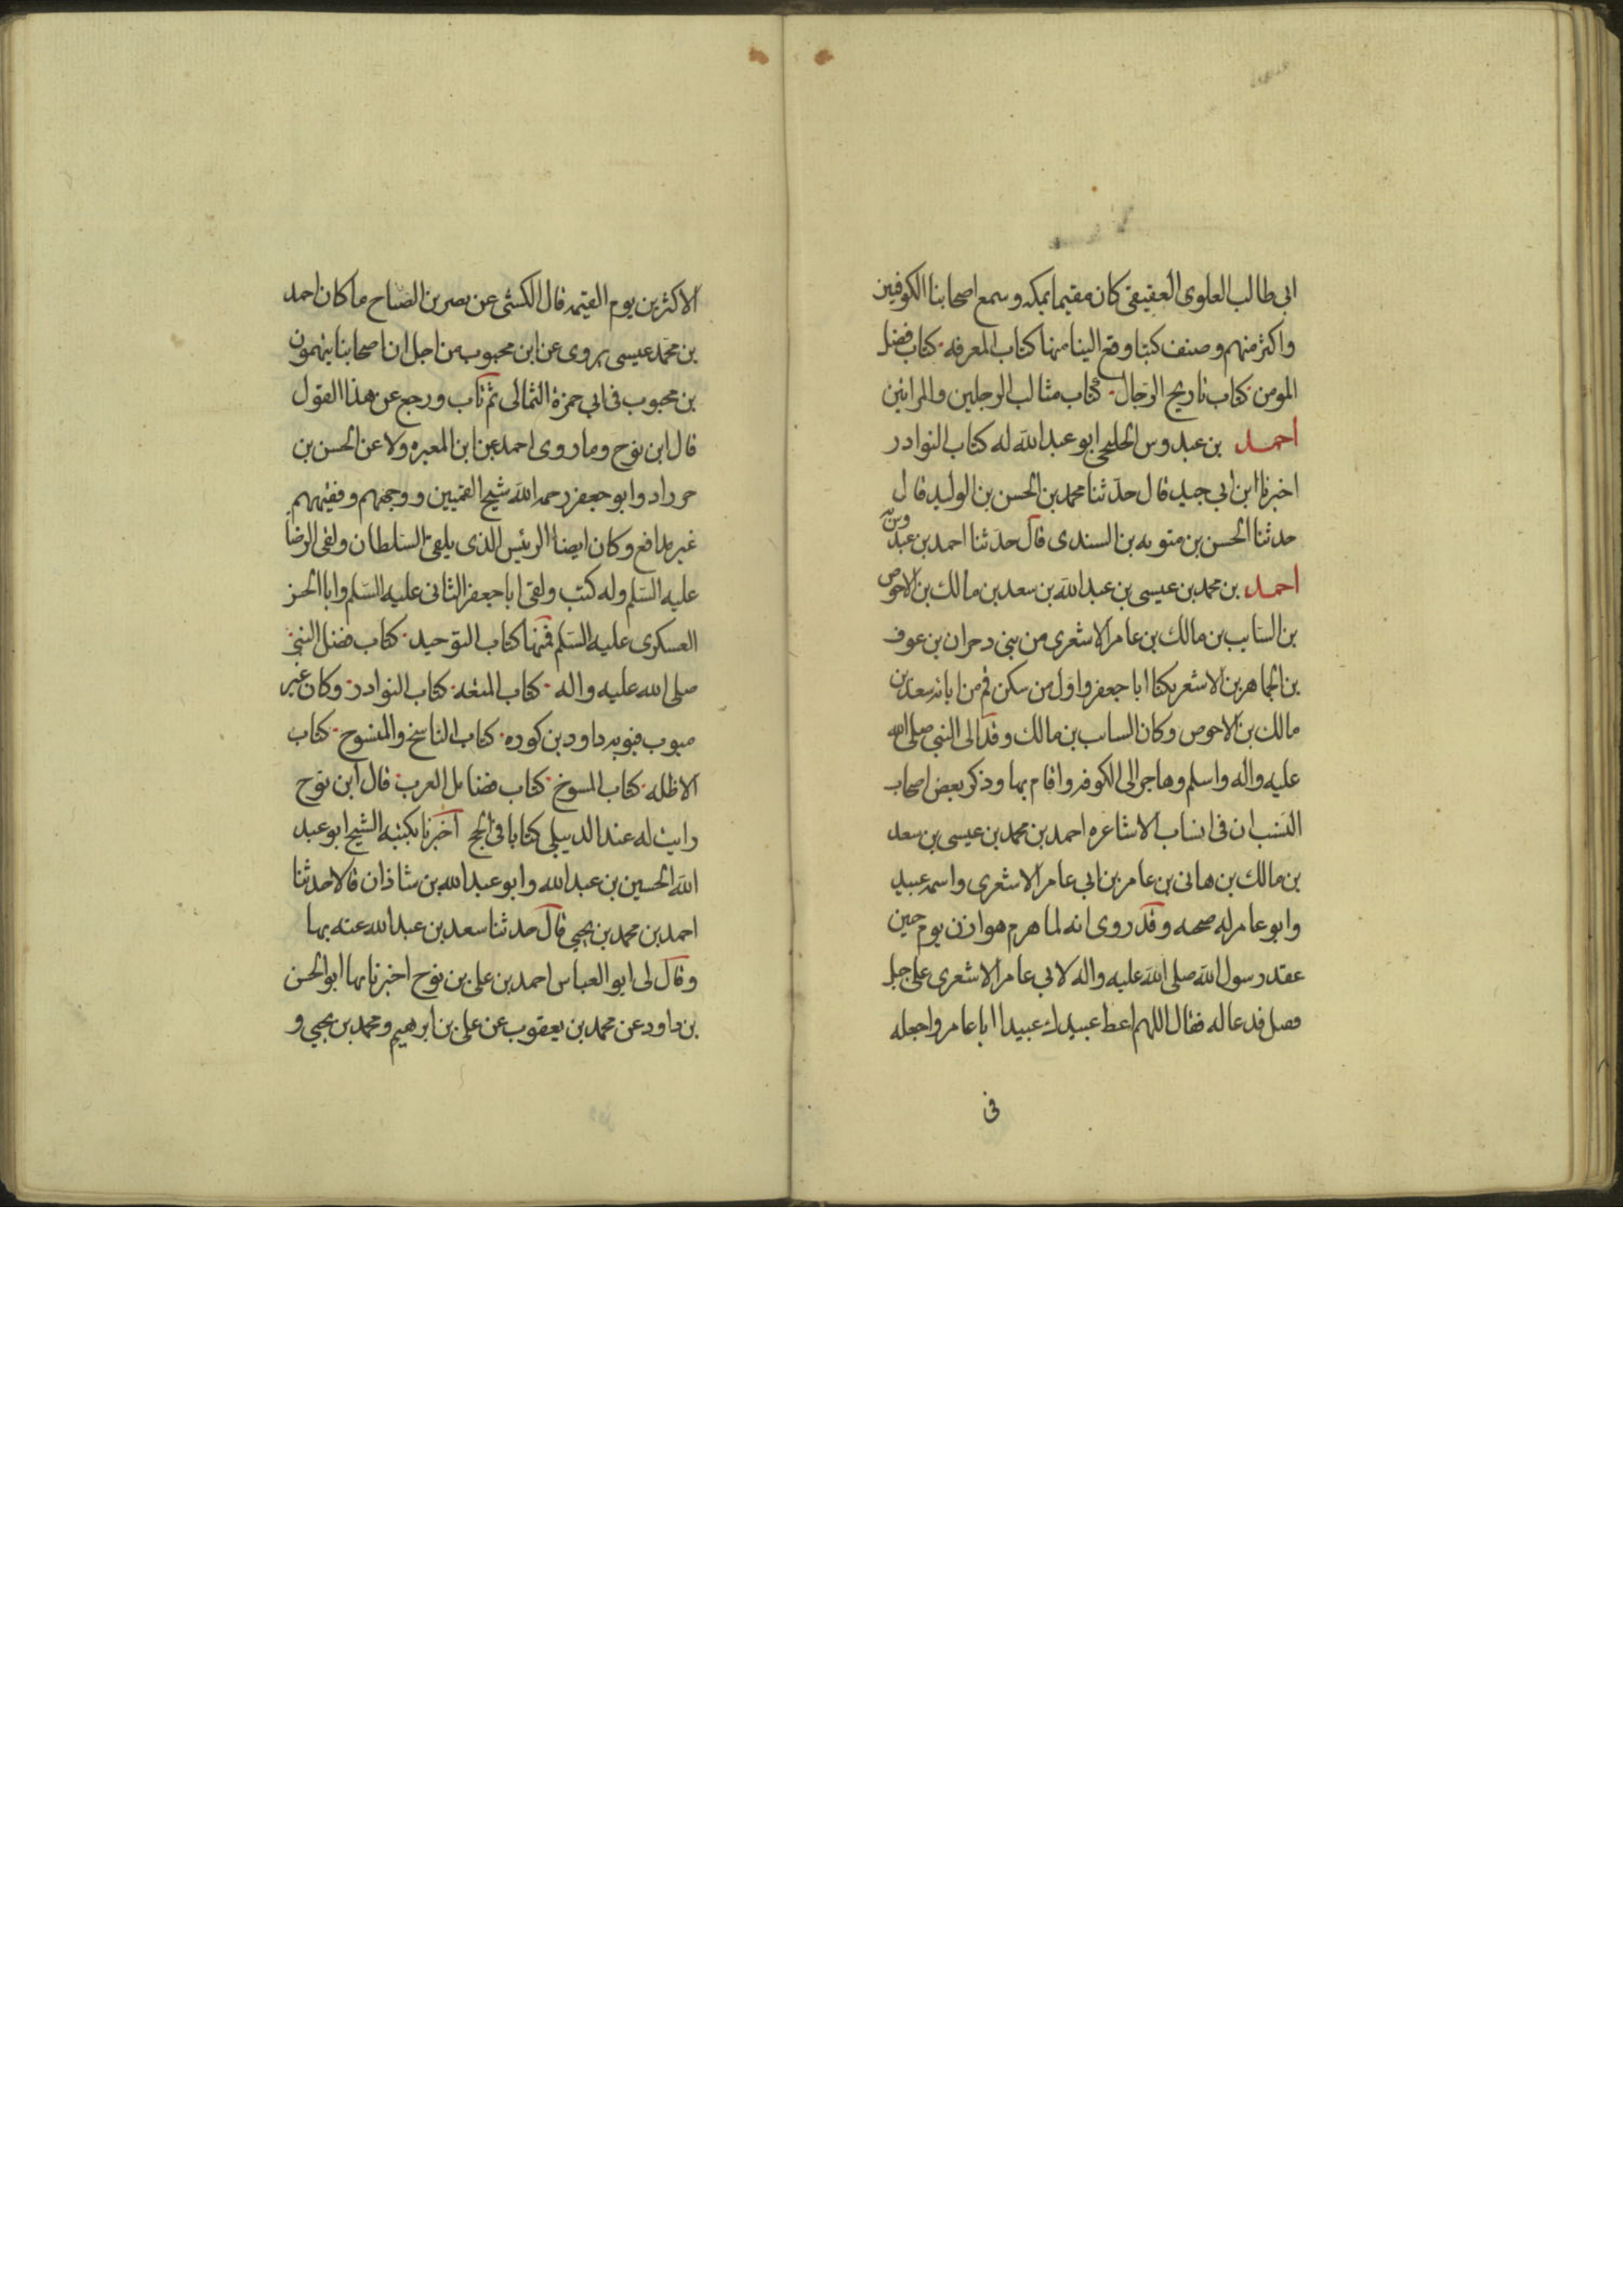 ابى طالب العلوى العقيقى كان مقيما بمكه وسمع اصحابنا الكوفين
واكثر منهم وصنف كتبا وقع الينا منها كتاب المعرفه كتاب فضل
المومن كتاب تاريخ الرجال كتاب مثالب الرجلين والمراتين
احمد بن عبدوس الخلنجى ابو عبد الله له كتاب النوادر
اخبرنا ابن ابى جيد قال حدثنا محمد بن الحسن بن الوليد قال
حدثنا الحسن بن متويه بن السندى قال حدثنا احمد بن عبدوس به
احمد بن محمد بن عيسى بن عبد الله بن سعد بن مالك بن الاحوص
بن الساب بن مالك بن عامر الاشعرى من بنى دحران بن عوف
بن الجماهر بن الاشعر يكنا ابا جعفر واول من سكن قم من ابائه سعد بن
مالك بن الاحوص وكان الساب بن مالك وفد الى النبى صلى الله
عليه واله واسلم وهاجر الى الكوفه واقام بها وذكر بعض اصحاب
النسب ان فى انساب الاشاعره احمد بن محمد بن عيسى بن سعد
بن مالك بن هانى بن عامر بن ابى عامر الاشعرى واسمه عبيد
وابو عامر له صحبه وقد روى انه لما هرم هوازن يوم حنين
عقد رسول الله صلى الله عليه واله لابى عامر الاشعرى على خيل
فصل فدعا له فقال اللهم اعط عبيدك عبيدا ابا عامر واجعله
فى
الاكثرين يوم القيمه قال الكشى عن نصر بن الصباح ما كان احمد
بن محمد عيسى يروى عن ابن محبوب من اجل ان اصحابنا يتهمون
بن محبوب فى ابى حمزة الثمالى ثم تاب ورجع عن هذا القول
قال ابن نوح وما روى احمد عن ابن المغيره ولا عن الحسن بن
حرراد وابو جعفر رحمه الله شيخ القميين ووجههم وفقيههم
غير مدافع وكان ايضا الرئيس الذى يلقى السلطان ولقى الرضا
عليه السلم وله كتب ولقى ابا جعفر الثانى عليه السلم وابا الحسن
العسكرى عليه السلم فمنها كتاب التوحيد كتاب فضل النبى
صلى الله عليه واله كتاب المتعه كتاب النوادر وكان غير
مبوب فبوبه داود بن كوره كتاب الناسخ والمنسوخ كتاب
الاظله كتاب المسوخ كتاب فضائل العرب قال ابن نوح
رايت له عند الدبيلى كتابا فى الحج اخبرنا بكتبه الشيخ ابو عبد
الله الحسين بن عبد الله وابو عبد الله بن شاذان قالا حدثنا
احمد بن محمد بن يحيى قال حدثنا سعد بن عبد الله عنه بها
وقال لى ابو العباس احمد بن على بن نوح اخبرنا بها ابو الحسن
بن داود عن محمد بن يعقوب عن على بن ابرهيم ومحمد بن يحيى و